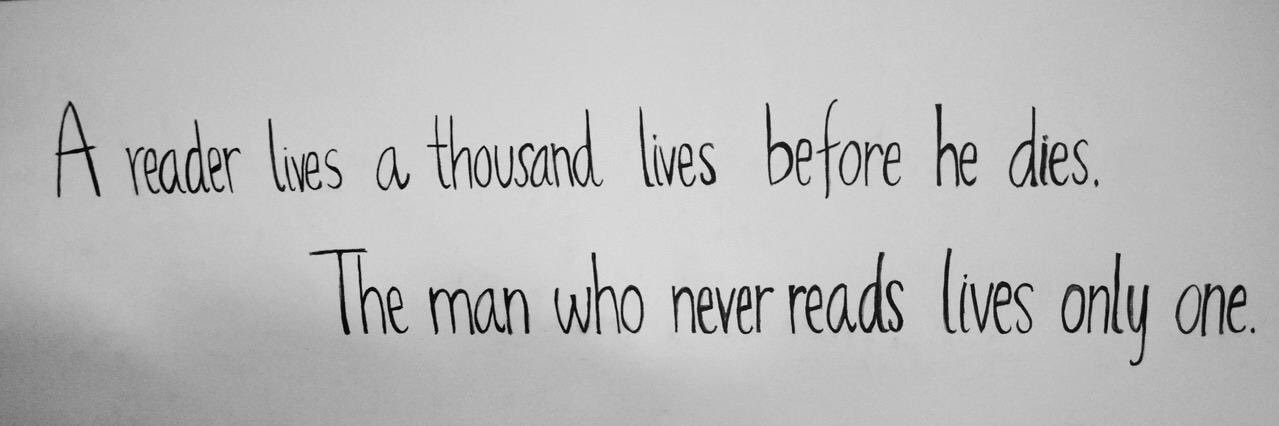 A reader lives a thousand lives before he dies.
The man who never reads lives only one.